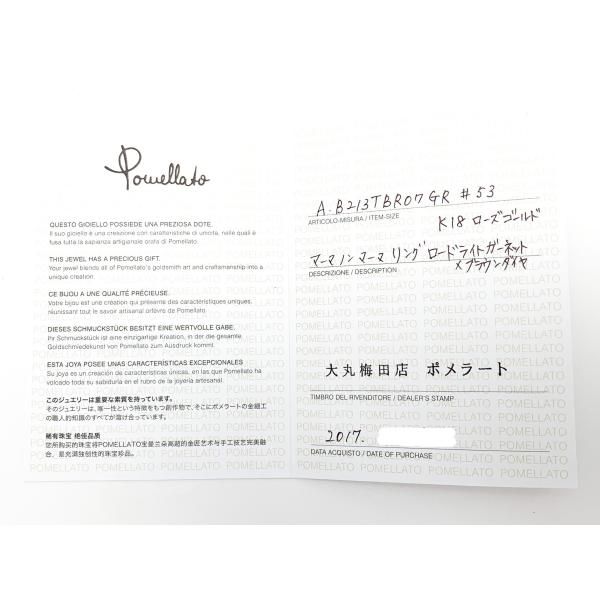 Pomellato
QUESTO GIOIELLO POSSIEDE UNA PREZIOSA DOTE.
Il suo gioiello è una creazione con caratteristiche di unicità, nelle quali è
fusa tutta la sapienza artigianale orafa di Pomellato.
THIS JEWEL HAS A PRECIOUS GIFT.
Your jewel blends all of Pomellato's goldsmith art and craftsmanship into a
unique creation.
CE BIJOU A UNE QUALITÉ PRÉCIEUSE.
Votre bijou est une création qui présente des caractéristiques uniques,
réunissant tout le savoir artisanal orfèvre de Pomellato.
DIESES SCHMUCKSTÜCK BESITZT EINE WERTVOLLE GABE.
Ihr Schmuckstück ist eine einzigartige Kreation, in der die gesamte
Goldschmiedekunst von Pomellato zum Ausdruck kommt.
ESTA JOYA POSEE UNAS CARACTERÍSTICAS EXCEPCIONALES
Su joya es una creación de características únicas, en las que Pomellato ha
volcado toda su sabiduría en el rubro de la joyería artesanal.
このジュエリーは貴重な素質を持っています。
そのジュエリーは、唯一性という特徴をもつ創作物で、そこにポメラートの金細工
の職人的知識のすべてが溶け合っています。
稀有珠宝 绝佳品质
您所购买的珠宝将POMELLATO宝曼兰朵高超的金匠艺术与手工技艺完美融
合，是充满独创性的珠宝珍品。
A.B213TBR07GR #53
ARTICOLO-MISURA / ITEM-SIZE
K18 ローズゴールド
マーマ ノン マーマ リング ロードライトガーネット
×ブラウンダイヤ
DESCRIZIONE / DESCRIPTION
大丸梅田店 ポメラート
TIMBRO DEL RIVENDITORE / DEALER'S STAMP
2017.
DATA ACQUISTO / DATE OF PURCHASE